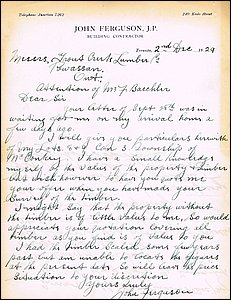 Telephone Junction 7362
240 Close Street
JOHN FERGUSON, J.P.
BUILDING CONTRACTOR
Toronto, 2nd Dec 1929
Messrs, Trout Creek Lumber Co
Powassan
Ont.
Attention of Mr J Baechler
Dear Sir
Your letter of Sept 18th was in
waiting for me on my arrival home a
few days ago.
I will give you particulars herewith
of my Lots Con 3 Township of
McConkey. I have a small knowledge
myself of the value of the property & timber
but wish however to have you give me
your offer when you had made your
survey of the timber
I might say that the property without
the timber is of little value to me, So would
appreciate your quotation covering all
timber as you find is of value to you
I had the timber scaled some few years
past but am unable to locate the figures
at the present date. So will leave the price
Situation to your discretion
Yours truly
John Ferguson